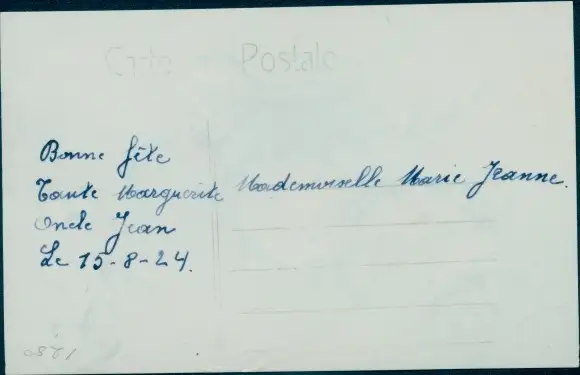 Carte Postale
Bonne fête
Tante Marguerite
Oncle Jean
Le 15-8-24.
Mademoiselle Marie Jeanne.